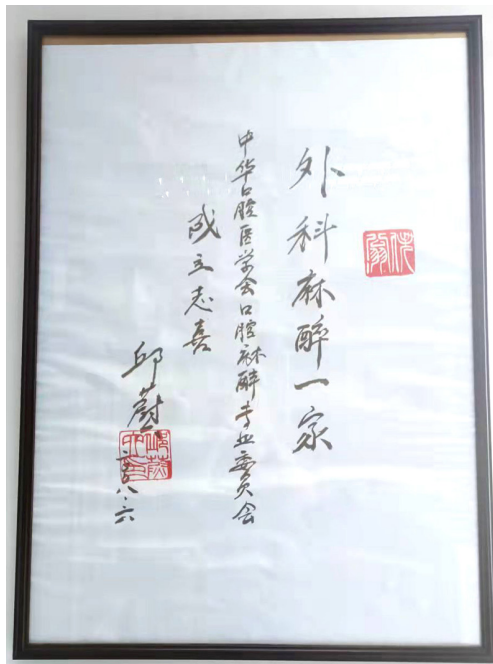 外科麻醉一家
中华口腔医学会口腔麻醉专业委员会
成立志喜
邱蔚六